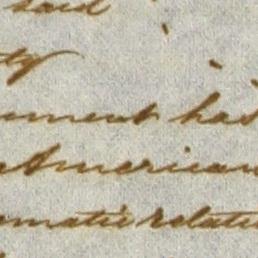 said
ty
ument has
American
omatic relatio